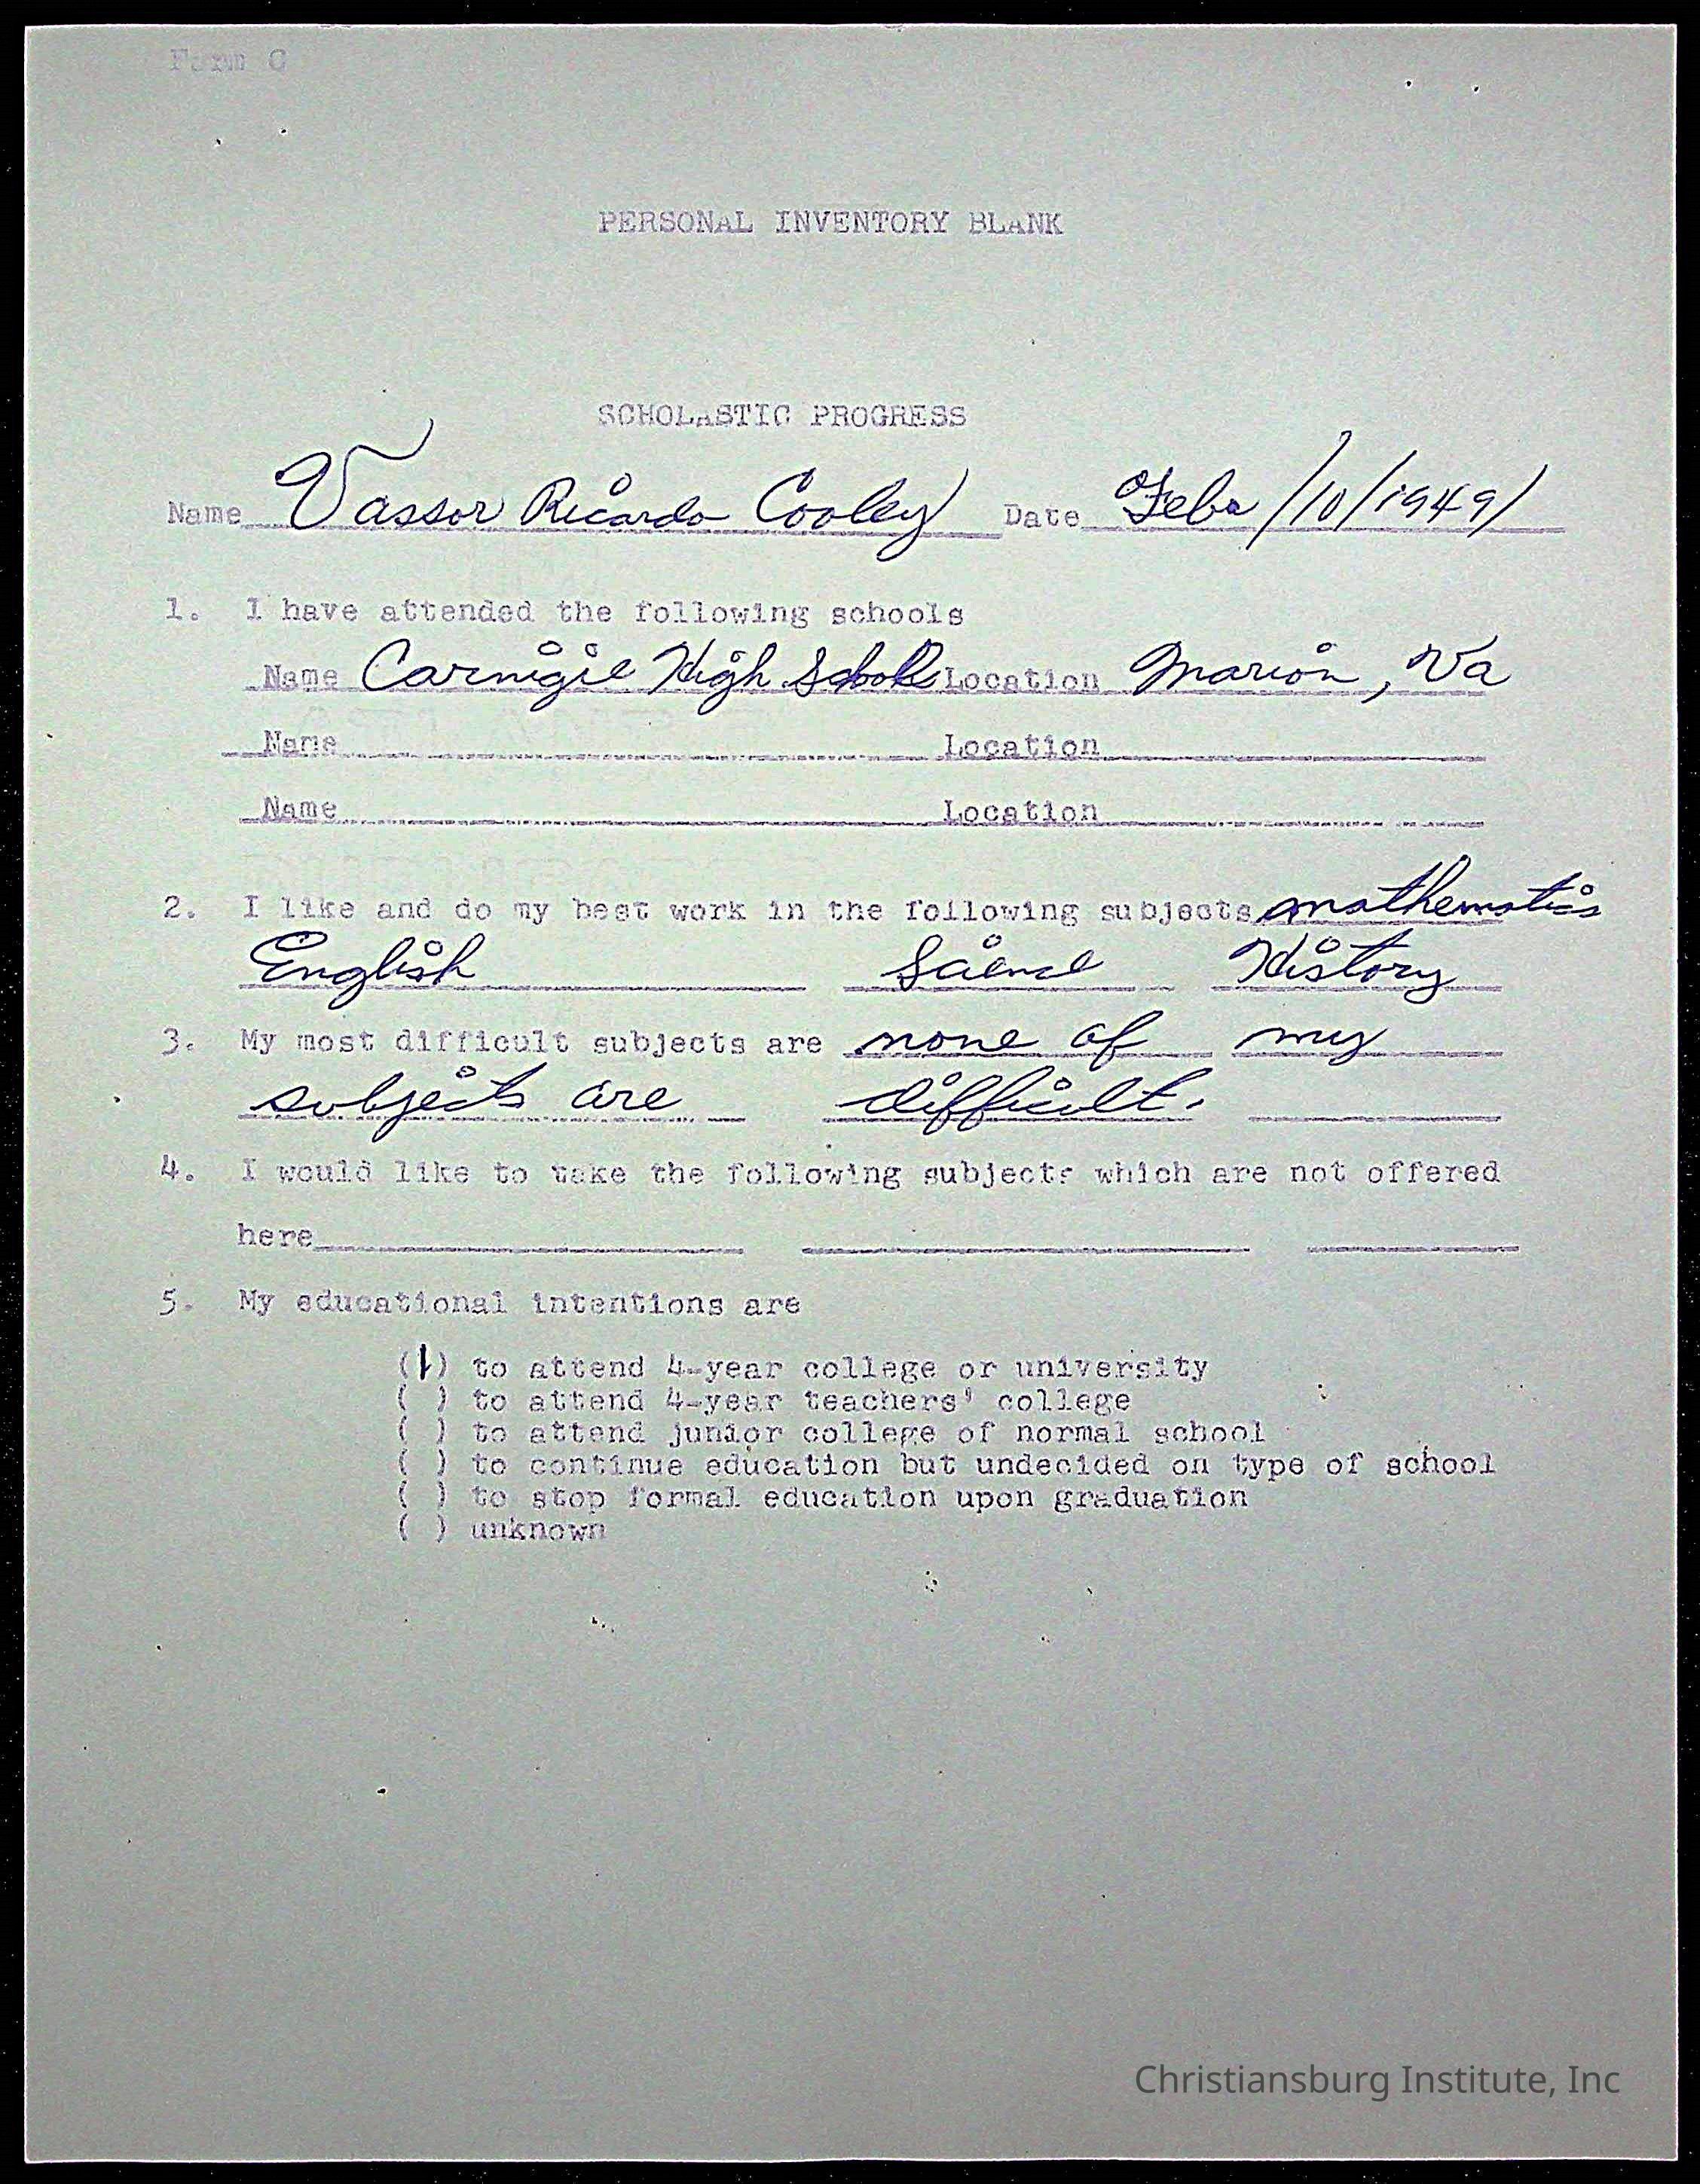 Form C
PERSONAL INVENTORY BLANK
SCHOLASTIC PROGRESS
Name Vassor Ricardo Cooley Date Feb. /10/1949/
1. I have attended the following schools
Name Carnigie High School Location Marion, Va
Name Location
Name Location
2. I like and do my best work in the following subjects mathematics
English Science History
3. My most difficult subjects are none of my
subjects are difficult.
4. I would like to take the following subjects which are not offered
here
5. My educational intentions are
(1) to attend 4-year college or university
( ) to attend 4-year teachers' college
( ) to attend junior college of normal school
( ) to continue education but undecided on type of school
( ) to stop formal education upon graduation
( ) unknown
Christiansburg Institute, Inc